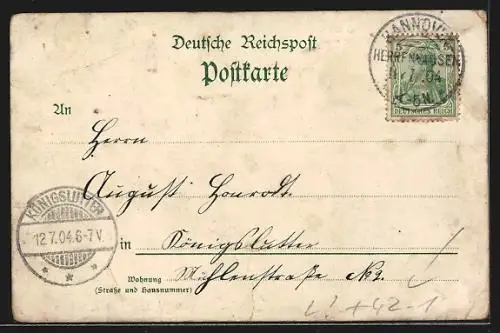 Deutsche Reichspost
Postkarte
HANNOVER
HERRENHAUSEN
11.7.04
DEUTSCHES REICH
An
Herrn
August
KÖNIGSLUTTER
12.7.04.6-7V.
in Königslutter
Wohnung
(Straße und Hausnummer)
Mühlenstraße No